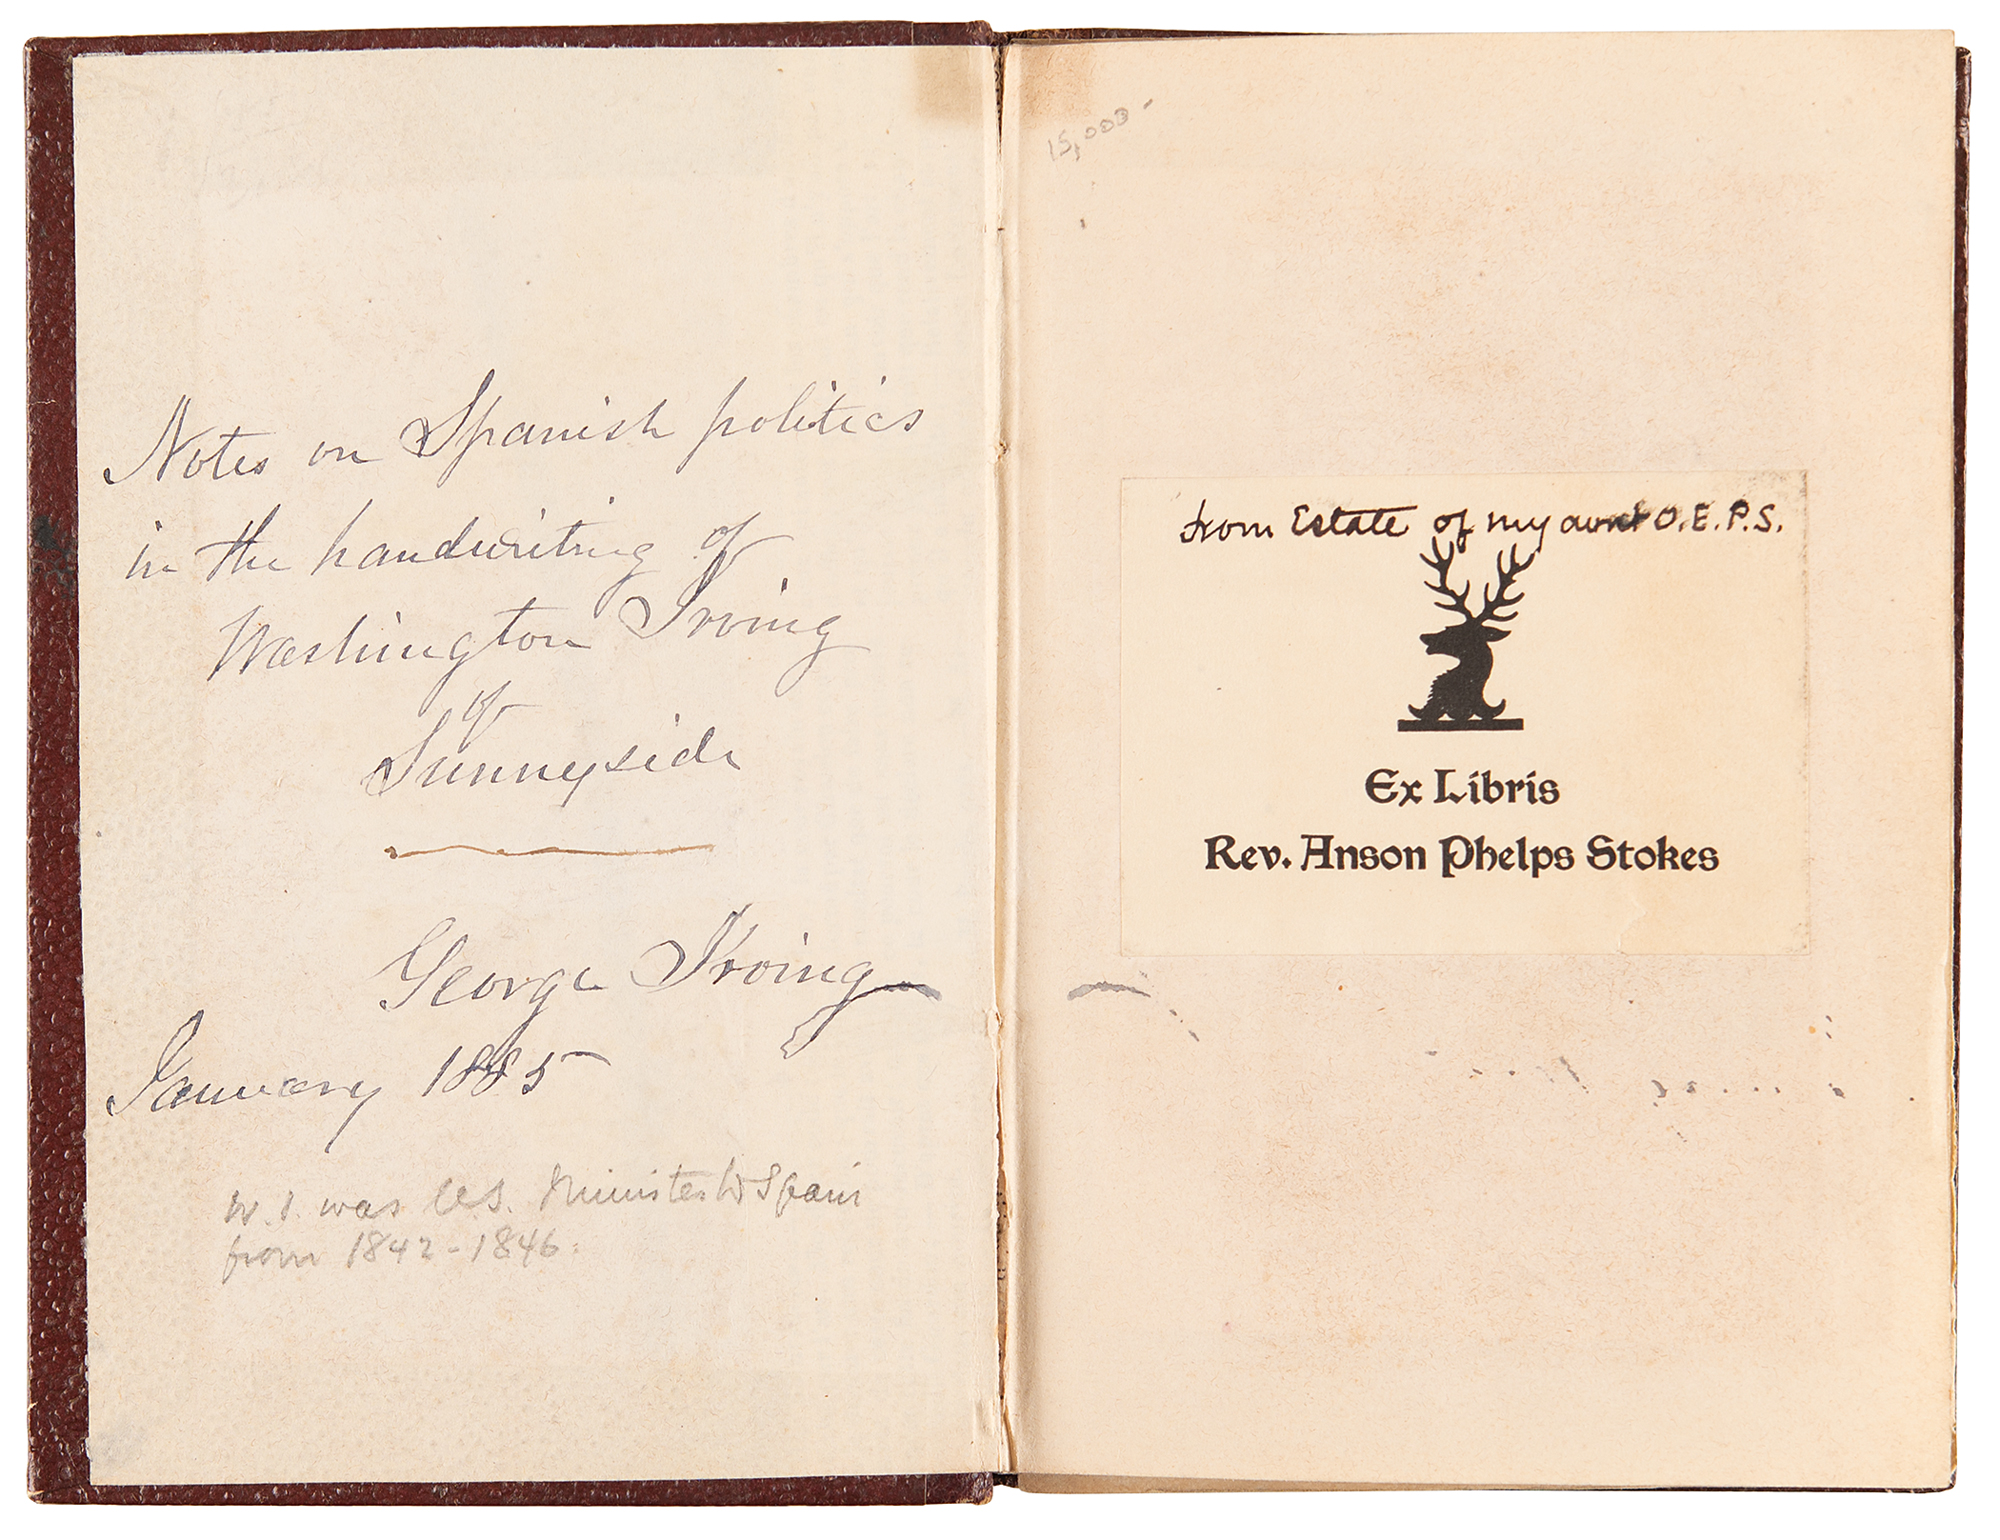 Notes on Spanish politics
in the handwriting of
Washington Irving
of
Sunnyside
George Irving
January 1885
W. I. was U.S. Minister to Spain
from 1842-1846.
15,000-
from Estate of my aunt O.E.P.S.
Ex Libris
Rev. Anson Phelps Stokes